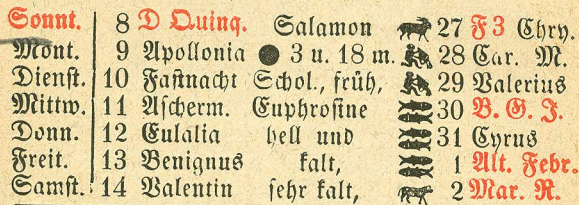 Sonnt. 8 D Quinq. Salamon 27 F 3 Chry.
Mont. 9 Apollonia ● 3 u. 18 m. 28 Car. M.
Dienst. 10 Fastnacht Schol., früh, 29 Valerius
Mittw. 11 Ascherm. Euphrosine 30 B. G. J.
Donn. 12 Eulalia hell und 31 Cyrus
Freit. 13 Benignus kalt, 1 Alt. Febr.
Samst. 14 Valentin sehr kalt, 2 Mar. R.